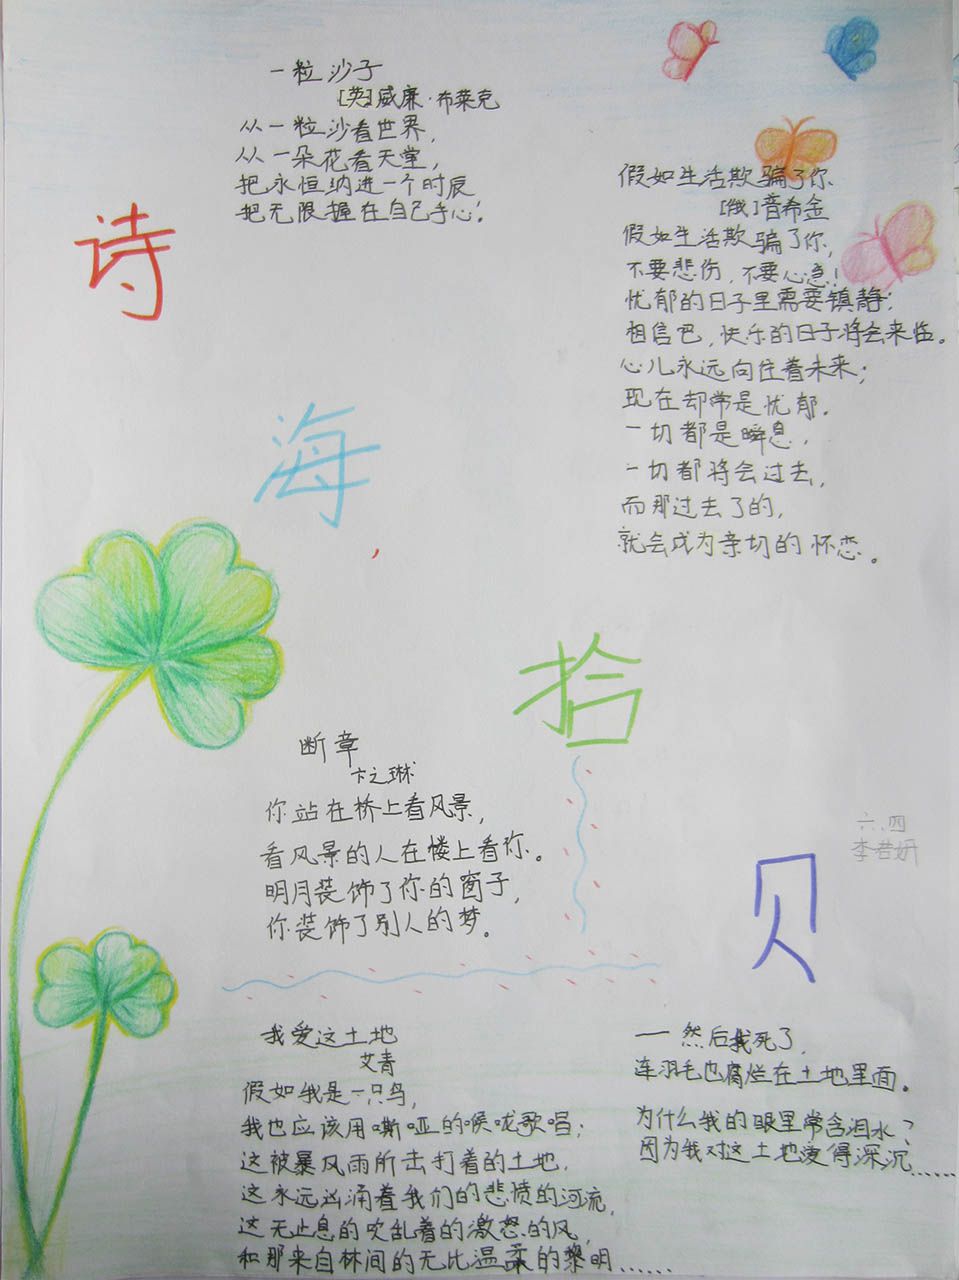 诗
海
拾
贝
一粒沙子
[英]威廉·布莱克
从一粒沙看世界，
从一朵花看天堂，
把永恒纳进一个时辰
把无限握在自己手心！
假如生活欺骗了你
[俄]普希金
假如生活欺骗了你，
不要悲伤，不要心急！
忧郁的日子里需要镇静；
相信吧，快乐的日子将会来临。
心儿永远向往着未来；
现在却常是忧郁。
一切都是瞬息，
一切都将会过去，
而那过去了的，
就会成为亲切的怀恋。
断章
卞之琳
你站在桥上看风景，
看风景的人在楼上看你。
明月装饰了你的窗子，
你装饰了别人的梦。
六.四
李君妍
我爱这土地
艾青
假如我是一只鸟，
我也应该用嘶哑的喉咙歌唱；
这被暴风雨所击打着的土地，
这永远汹涌着我们的悲愤的河流，
这无止息的吹乱着的激怒的风，
和那来自林间的无比温柔的黎明……
一然后我死了，
连羽毛也腐烂在土地里面。
为什么我的眼里常含泪水？
因为我对这土地爱得深沉……